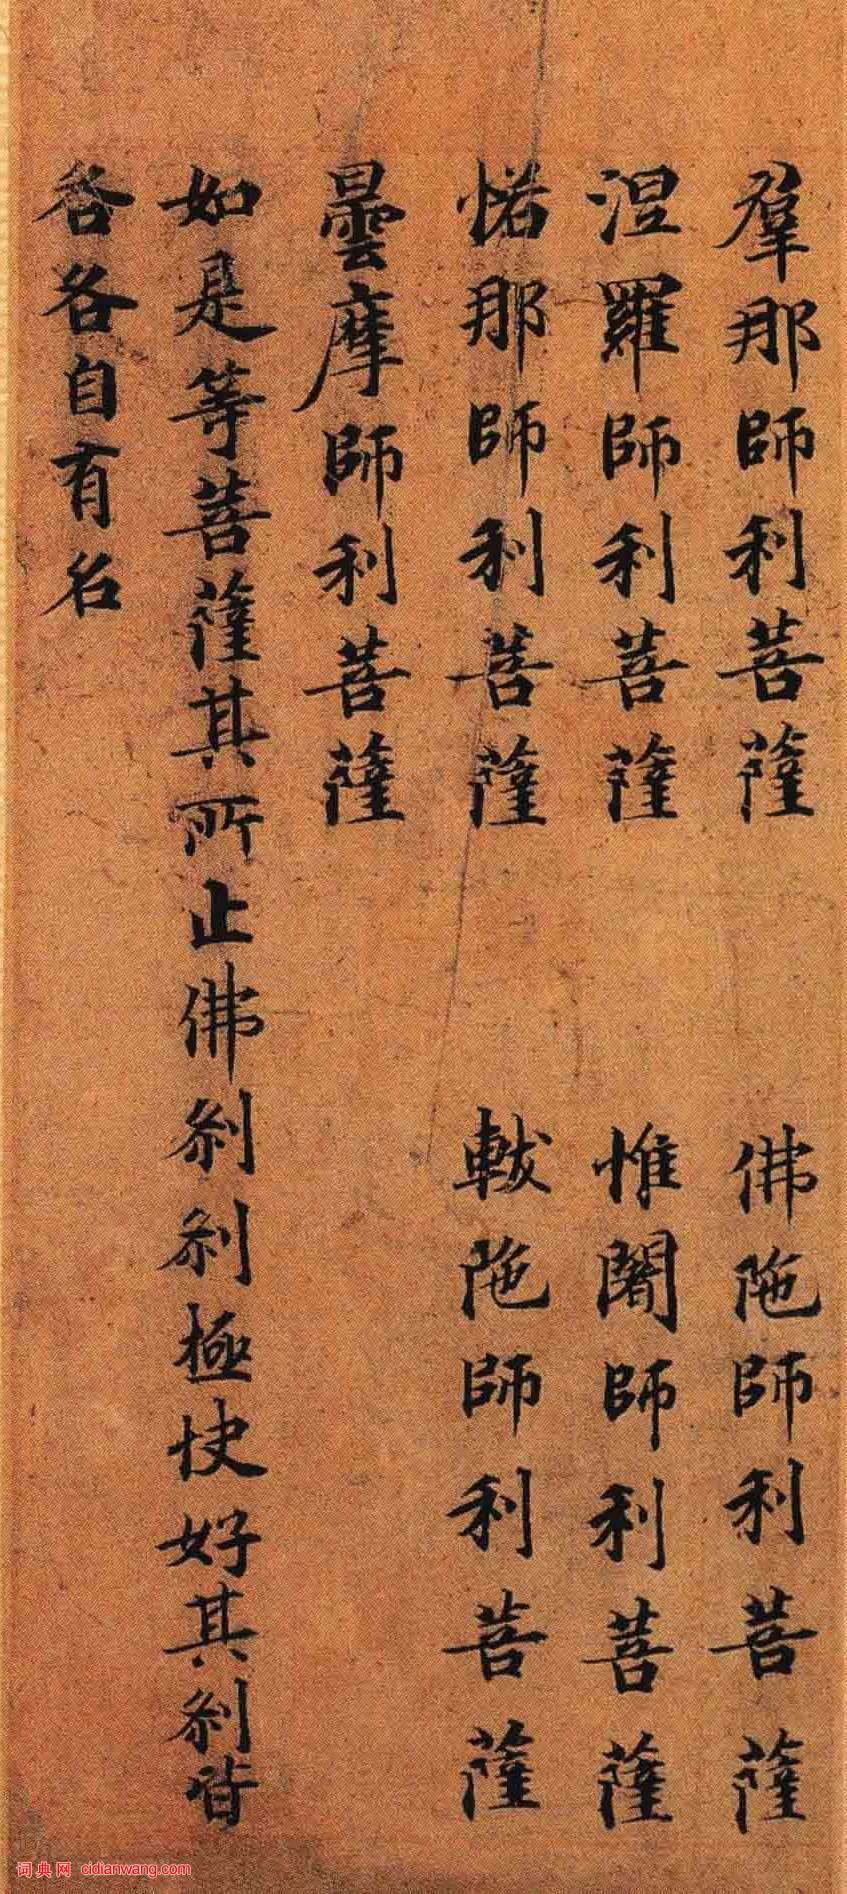 羣那師利菩薩　佛陁師利菩薩
涅羅師利菩薩　惟闍師利菩薩
惒那師利菩薩　軷陁師利菩薩
曇摩師利菩薩
如是等菩薩其所止佛刹刹極快好其刹皆
各各自有名
词典网 cidianwang.com